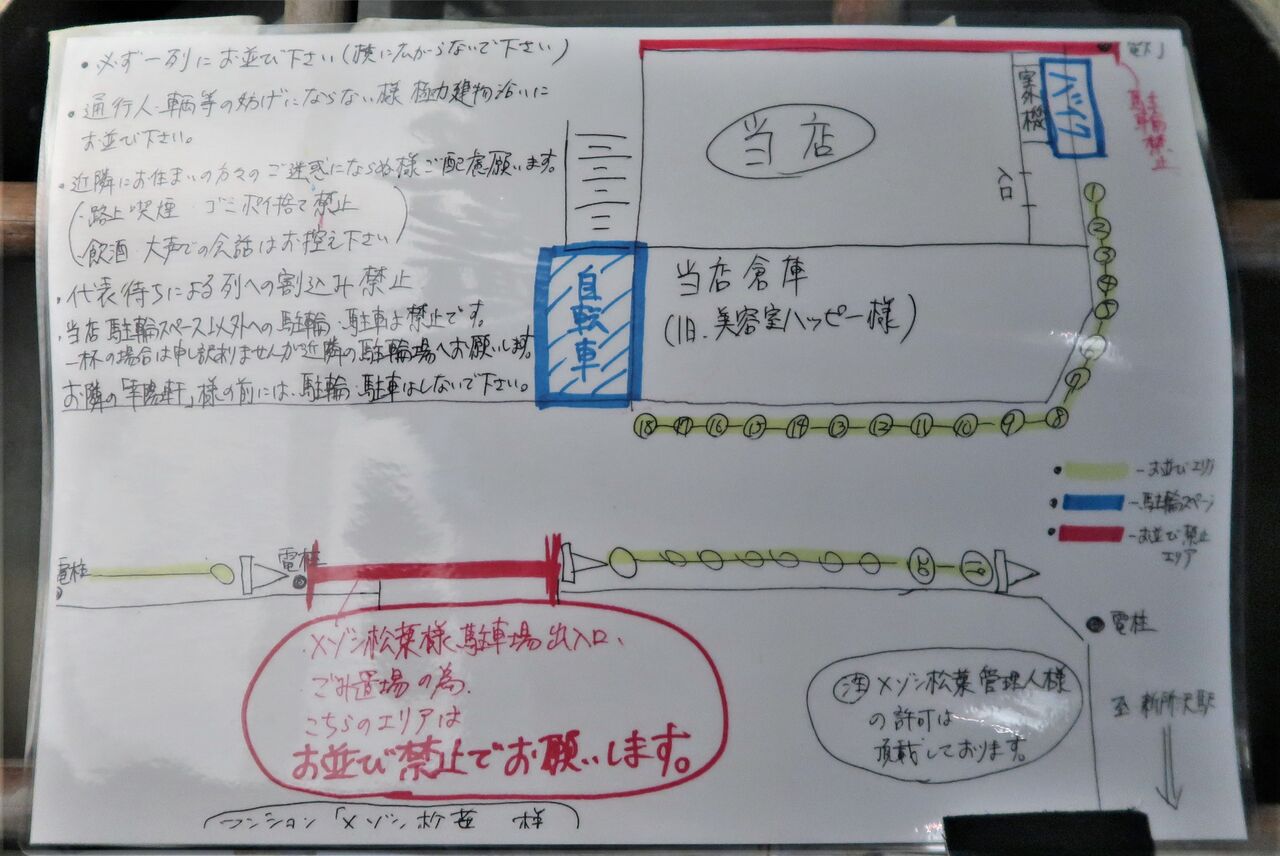 ・必ず一列にお並び下さい(横に広がらないで下さい)
・通行人・車輌等の妨げにならない様 極力建物沿いに
お並び下さい。
・近隣にお住まいの方々のご迷惑にならぬ様ご配慮願います。
(・路上喫煙・ゴミポイ捨て禁止
・飲酒・大声での会話はお控え下さい)
・代表待ちによる列への割込み禁止
・当店駐輪スペース以外への駐輪・駐車は禁止です。
一杯の場合は申し訳ありませんが近隣の駐輪場へお願いします。
お隣の「華陽軒」様の前には、駐輪・駐車はしないで下さい。
当店
室外機
バイク
駐輪禁止
入口
自転車
当店倉庫
(旧.美容室ハッピー様)
① ② ③ ④ ⑤ ⑦ ⑧
⑱ ⑰ ⑯ ⑮ ⑭ ⑬ ⑫ ⑪ ⑩ ⑨
・ーお並びエリア
・ー駐輪スペース
・ーお並び禁止
エリア
電柱
電柱
⑳ ⑲
メゾン松葉様駐車場出入口、
ごみ置場の為、
こちらのエリアは
お並び禁止でお願いします。
電柱
㊟メゾン松葉管理人様
の許可は
頂載しております。
至 新所沢駅
マンション「メゾン松葉」様